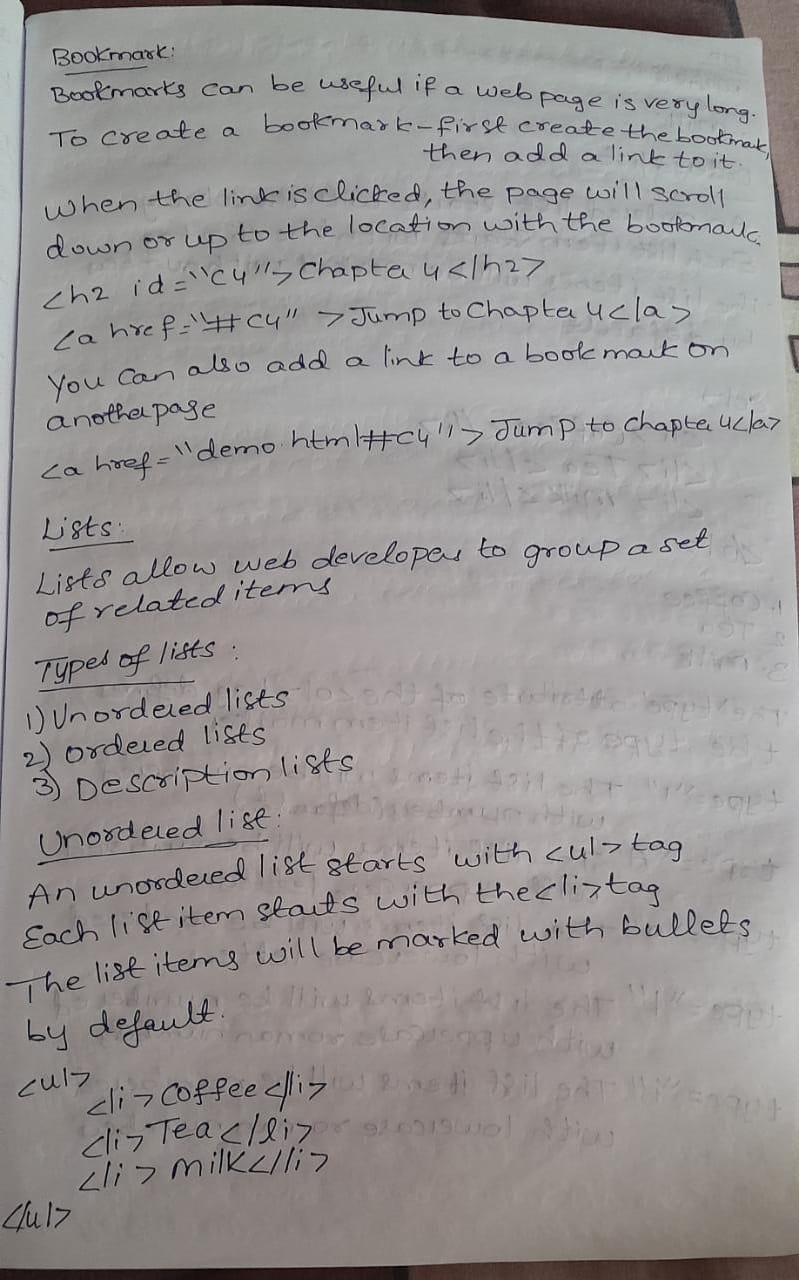 Bookmark:
Bookmarks can be useful if a web page is very long.
To create a bookmark - first create the bookmak,
then add a link to it.
When the link is clicked, the page will scroll
down or up to the location with the bookmark.
<h2 id="C4">Chapter 4</h2>
<a href="#C4">Jump to Chapter 4</a>
You can also add a link to a bookmark on
another page
<a href="demo.html#C4">Jump to Chapter 4</a>
Lists:
Lists allow web developers to group a set
of related items
Types of lists :
1) Unordered lists
2) ordered lists
3) Description lists
Unordered list:
An unordered list starts with <ul> tag
Each list item starts with the <li> tag
The list items will be marked with bullets
by default.
<ul>
<li>Coffee</li>
<li>Tea</li>
<li>milk</li>
</ul>